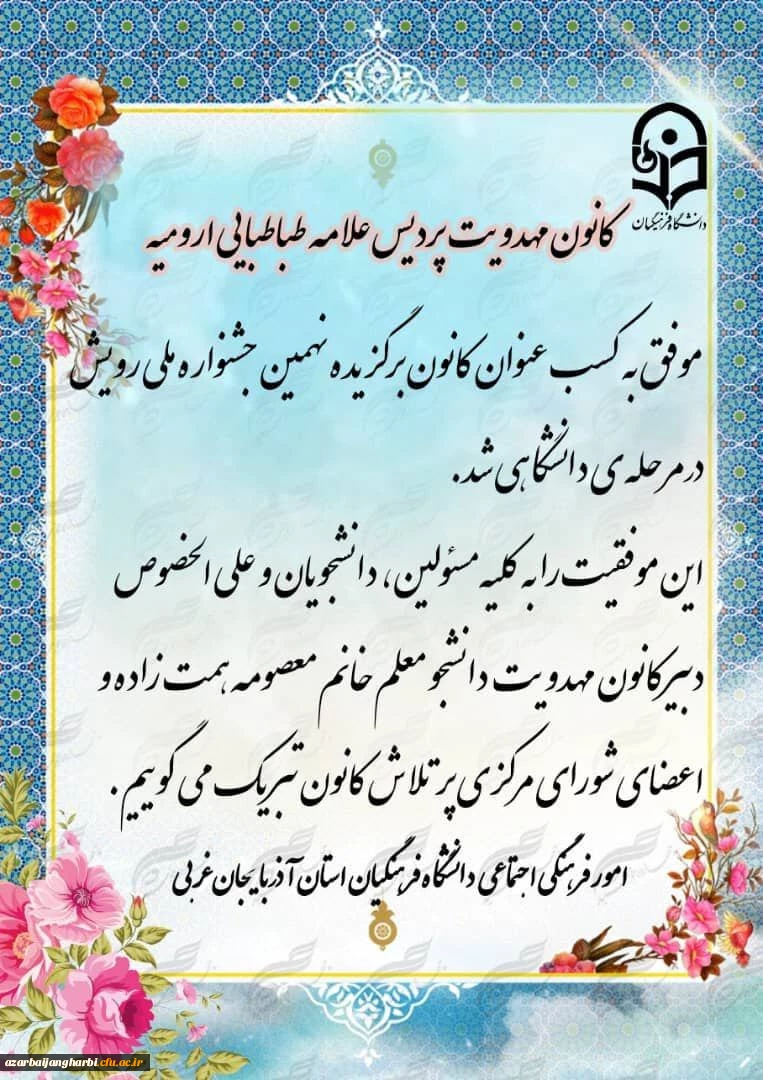 دانشگاه فرهنگیان
کانون مهدویت پردیس علامه طباطبایی ارومیه
موفق به کسب عنوان کانون برگزیده نهمین جشنواره ملی رویش
در مرحله ی دانشگاهی شد.
این موفقیت را به کلیه مسئولین، دانشجویان و علی الخصوص
دبیر کانون مهدویت دانشجو معلم خانم معصومه همت زاده و
اعضای شورای مرکزی پر تلاش کانون تبریک می گوییم.
امور فرهنگی اجتماعی دانشگاه فرهنگیان استان آذربایجان غربی
azarbaijangharbi.cfu.ac.ir